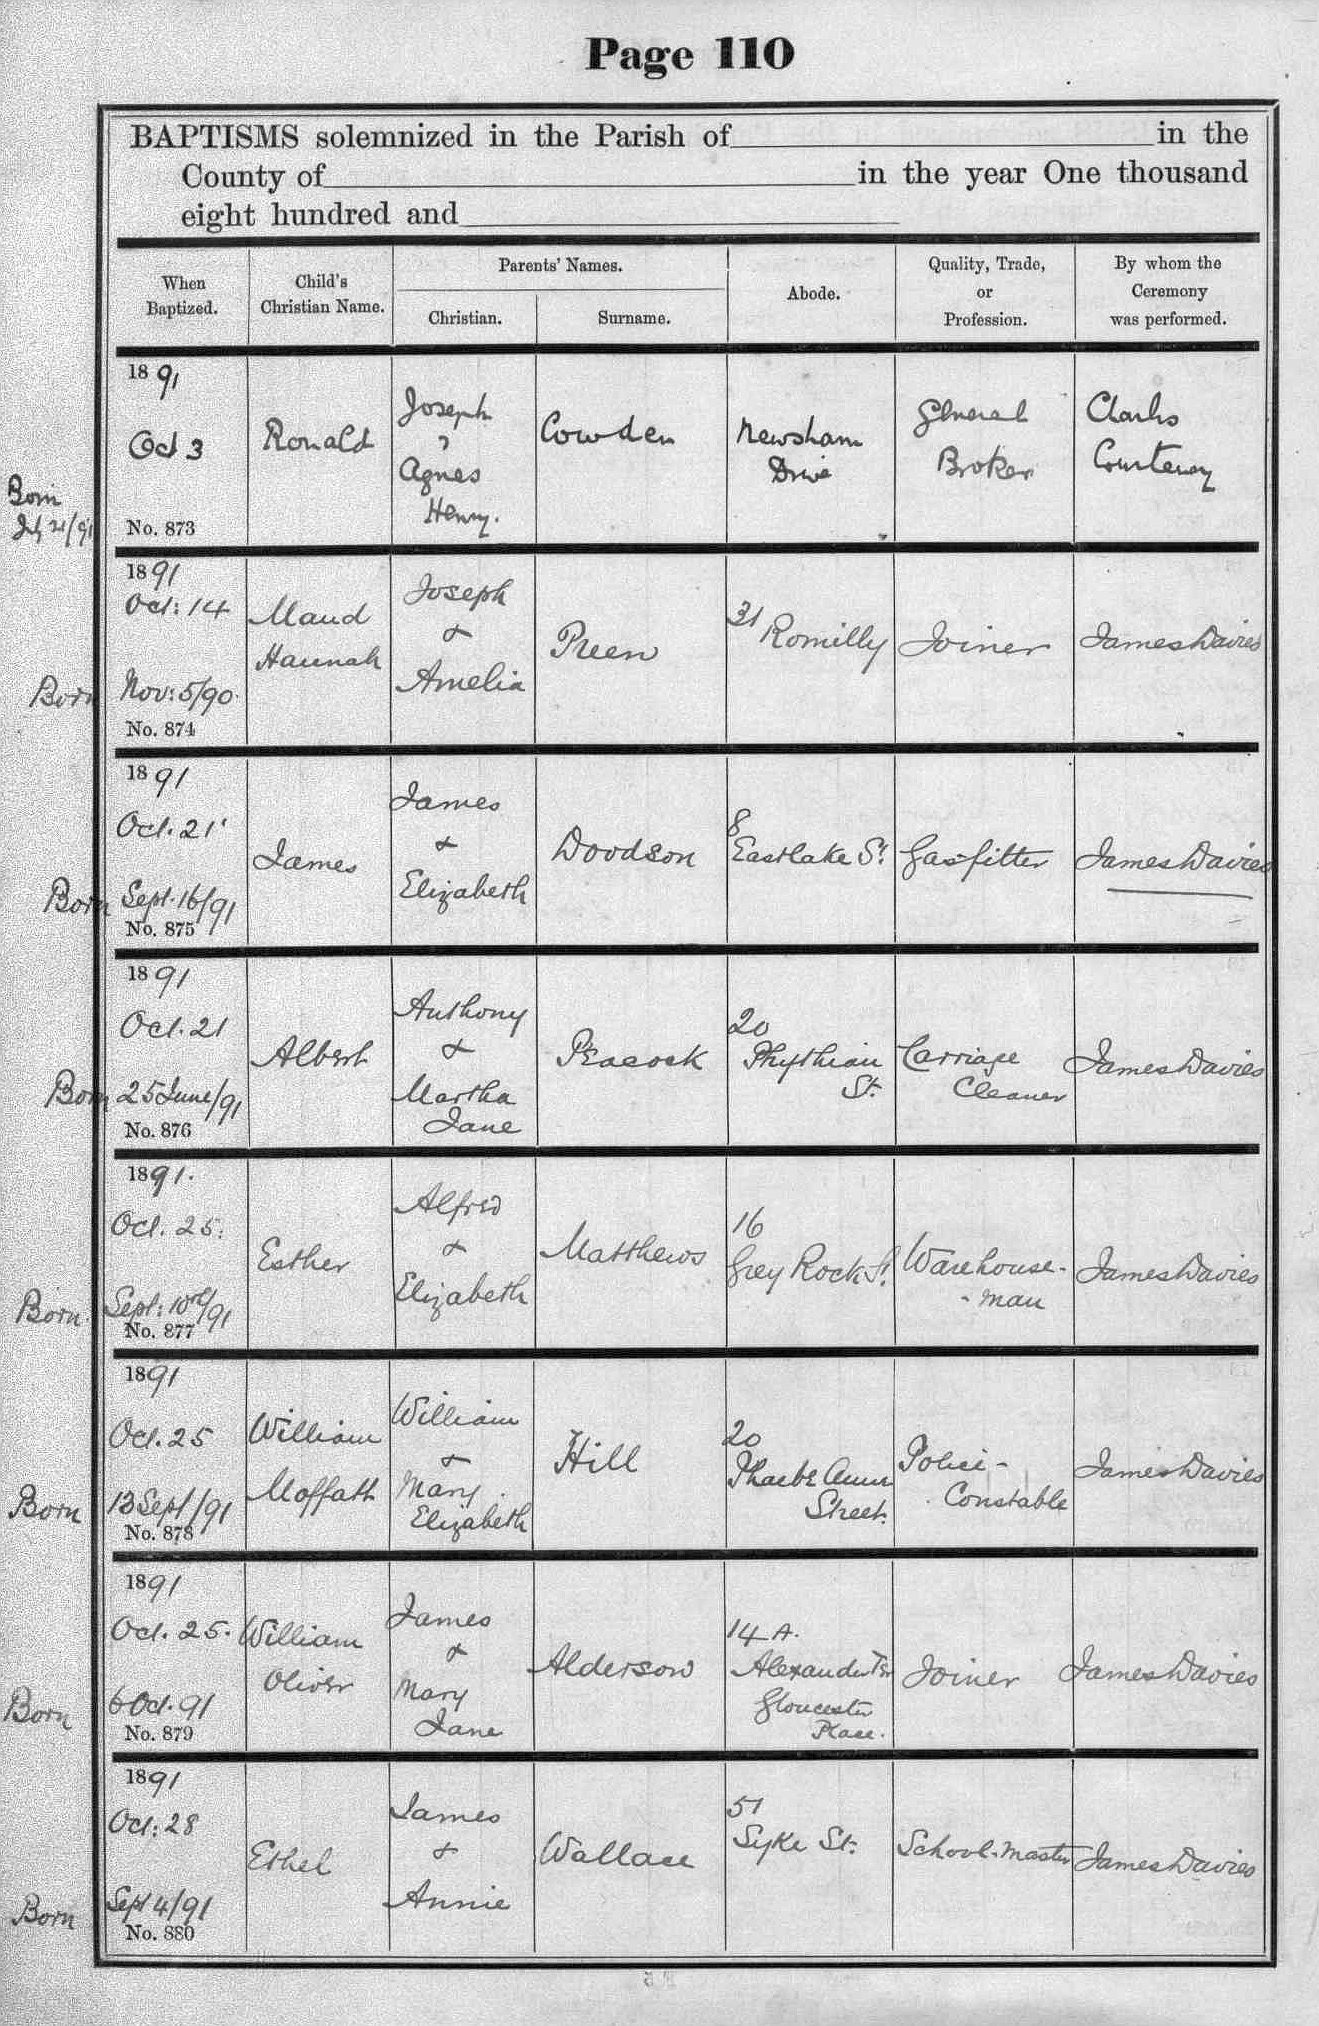 Page 110
BAPTISMS solemnized in the Parish of in the
County of in the year One thousand
eight hundred and
When
Baptized.
Child's
Christian Name.
Parents' Names.
Christian.
Surname.
Abode.
Quality, Trade,
or
Profession.
By whom the
Ceremony
was performed.
1891
Oct 3
Born
July 21/91
No. 873
Ronald
Joseph
&
Agnes
Henry.
Cowden
Newsham
Drive
General
Broker
Charles
Courtenay
1891
Oct: 14
Born Nov: 5/90
No. 874
Maud
Hannah
Joseph
&
Amelia
Preen
31 Romilly
Joiner
James Davies
1891
Oct. 21
Born Sept. 16/91
No. 875
James
James
&
Elizabeth
Doodson
8
Eastlake St.
Gasfitter
James Davies
1891
Oct. 21
Born 25 June/91
No. 876
Albert
Anthony
&
Martha
Jane
Peacock
20
Phythian
St.
Carriage
Cleaner
James Davies
1891.
Oct. 25.
Born. Sept: 10th/91
No. 877
Esther
Alfred
&
Elizabeth
Matthews
16
Grey Rock St.
Warehouse-
-man
James Davies
1891
Oct. 25
Born 13 Sept/91
No. 878
William
Moffatt
William
&
Mary
Elizabeth
Hill
20
Phoebe Anne
Street.
Police-
Constable
James Davies
1891
Oct. 25.
Born 6 Oct. 91
No. 879
William
Oliver
James
&
Mary
Jane
Alderson
14 A.
Alexander Ter
Gloucester
Place.
Joiner
James Davies
1891
Oct: 28
Born Sept 4/91
No. 880
Ethel
James
&
Annie
Wallace
51
Syke St.
School-master
James Davies